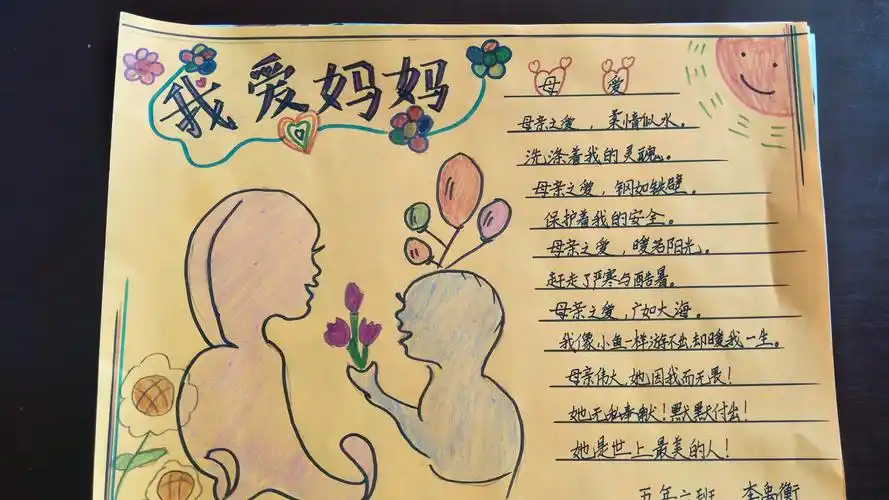 我爱妈妈
母爱
母亲之爱，柔情似水。
洗涤着我的灵魂。
母亲之爱，钢如铁壁。
保护着我的安全。
母亲之爱，暖若阳光。
赶走了严寒与酷暑。
母亲之爱，广如大海。
我像小鱼一样游不出却暖我一生。
母亲伟大，她因我而无畏！
她无私奉献！默默付出！
她是世上最美的人！
五年六班 李禹衡